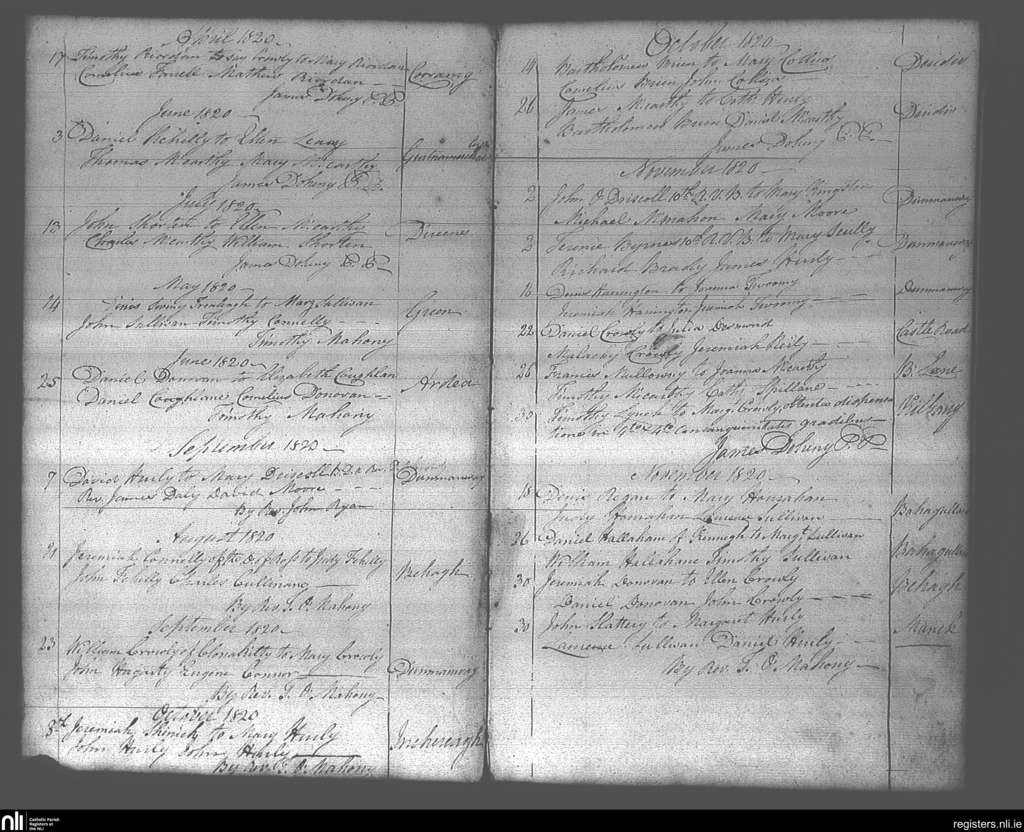 April 1820
17 Timothy Riordan to Mary Riordan
Cornelius Mathew Riordan Corranig
James Doheny P. P.
June 1820
3 Daniel Fehelly to Ellen Leary
Thomas McCarthy Mary McCarthy
James Doheny P. P.
July 1820
13 John Shorten to Ellen McCarthy
Charles McCarthy William Shorten Direenes
James Doheny P. P.
May 1820
24 Denis Swiny to Mary Sullivan
John Sullivan Timothy Connelly Green
Timothy Mahony
June 1820
25 Daniel Donovan to Elizabeth Coughlan
Daniel Cornelius Donovan Ardea
Timothy Mahony
September 1820
7 David Hurly to Mary Driscoll
Rev. James Daly David Moore Dunmanway
By Rev. John Ryan
August 1820
21 Jeremiah Connelly of the of Ross to Judy Fehilly
John Fehilly Charles Cullinane Behagh
By Rev. T. O Mahony
September 1820
23 William Crowly of Clonakilty to Mary Crowly
John Hagarty Eugene Connor Dunmanway
By Rev. T. O Mahony
October 1820
8th Jeremiah to Mary Hurly
John Hurly John Hurly Inchireagh
By Rev. T. O Mahony
October 1820
14 Bartholomew Brien to Mary Collins
Cornelius Brien John Collins
26 James McCarthy to Cath. Hurly
Bartholomew Brien Daniel McCarthy
James Doheny P. P.
November 1820
2 John O Driscoll 10th R.V.B. to Mary Kingston
Michael McMahon Mary Moore Dunmanway
2 Terence Byrnes 10th R.V.B. to Mary Scully
Richard Brady James Hurly Dunmanway
16 Denis Harrington to Joanna Twoomy
Jeremiah Harrington Jeremiah Twoomy Dunmanway
22 Daniel Crowly to Julia Desmond
Malachy Crowly Jeremiah Reily Castle Road
26 Francis Mullowny to Joanna McCarthy
Timothy McCarthy Cath. Spillane B. Lane
30 Timothy Lynch to Mary Crowly, obtenta dispensa
tione in 4to & 4to consanguinitatis gradibus
James Doheny P. P.
November 1820
18 Denis Regan to Mary Hourahan
Judy Hourahan Laurence Sullivan
26 Daniel Hallahan of Kenneigh to Margt. Sullivan
William Hallahane Timothy Sullivan
30 Jeremiah Donovan to Ellen Crowly
Daniel Donovan John Crowly Behagh
30 John Slattery to Margaret Hurly
Laurence Sullivan Daniel Hurly Manch
By Rev. T. O Mahony
nli
Catholic Parish
Registers at
the NLI
registers.nli.ie